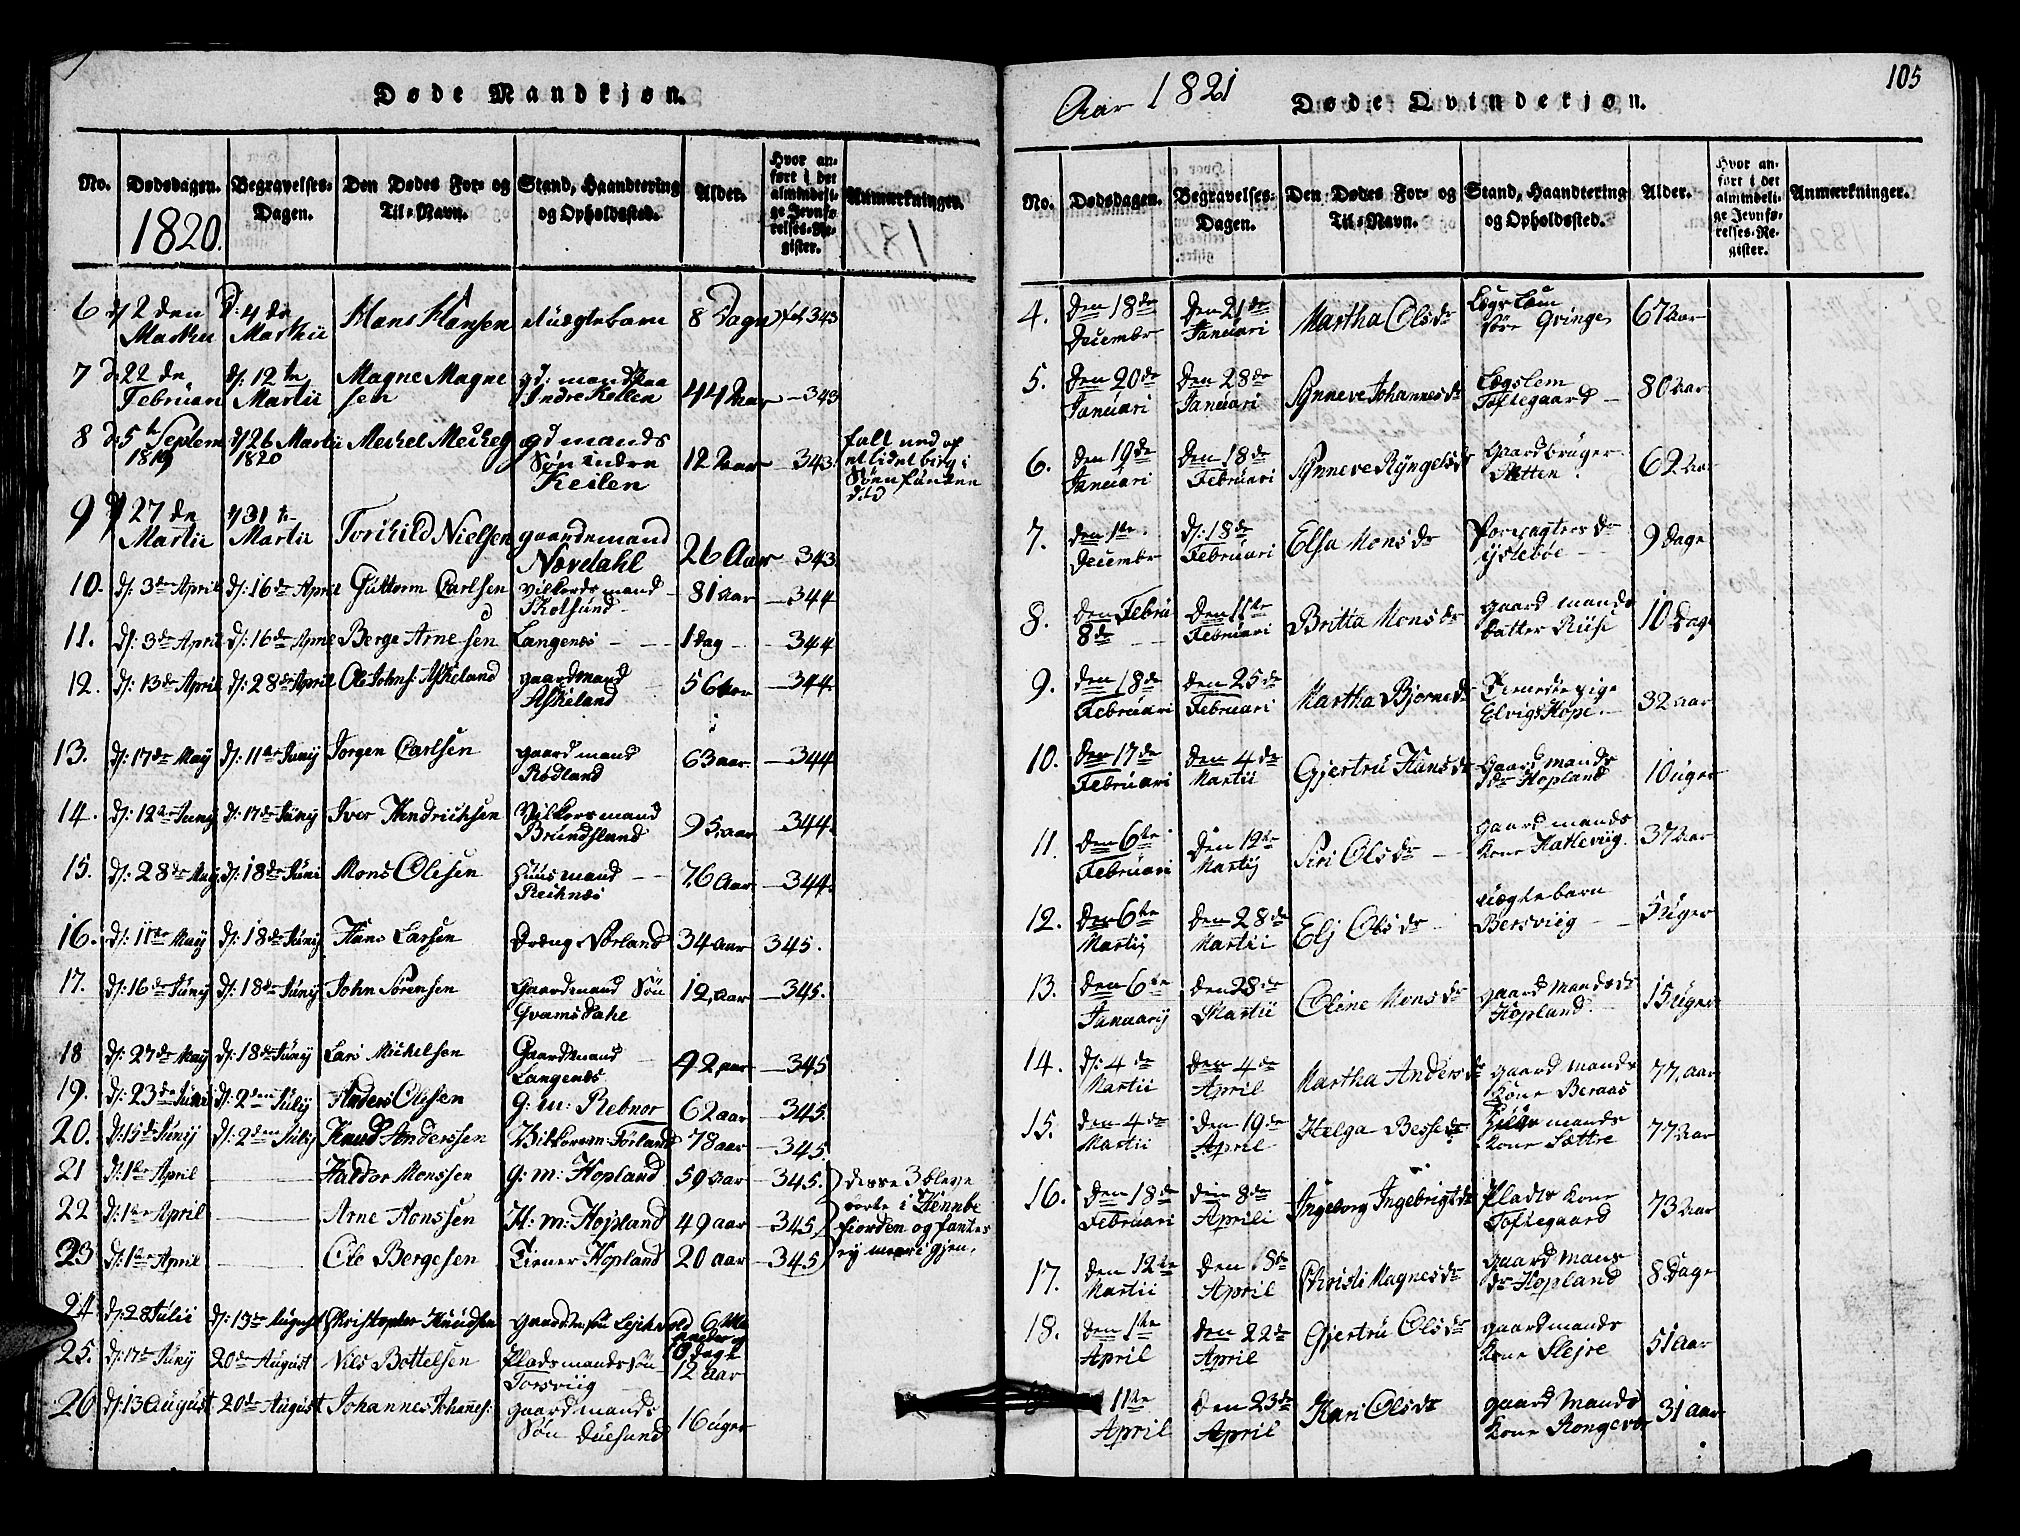 Døde Mandkjøn.
No. Dødsdagen. Begravelses-Dagen. Den Dødes For- og Til-Navn. Stand, Haandtering og Opholdssted. Alder. Hvor anført i det almindelige Jevnførelses-Register. Anmærkninger.
1820.
6 d/ 2 den Martii d: 4 de Martii Hans Hansen et uægte barn 8 Dage fol 343
7 d: 22 de Februari d/: 12 te Martii Magne Magnesen gd: mand paa Indre Keilen 44 Aar - 343
8 d: 5 te Septem 1819 d/ 26 Martii 1820 Mechel Mechelsen gd mands Søn indre Keilen 12 Aar - 343. falt ned af et lidet bierg i Søen funden død
9 d/ 27 de Martii d/ 31 te Martii Torchild Nielsen gaardemand Nævedahl 26 Aar - 343.
10. d/: 3 de April d/: 16 de April Guttorm Carlsen Vilkors mand Skolsund 81 Aar - 344
11. d/: 3 de April d/: 16 de April Berge Arnesen Langenæs 1 Dag - 344
12. d/: 13 de April d/: 28 de April Ole Johns: Askeland gaardmand Askeland 56 Aar - 344.
13. d/: 17 de May d/: 11 te Junij Jørgen Carlsen gaardmand Rødland 63 aar - 344
14. d/: 12 te Junij d/: 17 de Junij Iver Hendrichsen Vilkors mand Brundsland 95 aar - 344.
15. d/: 28 de May d/: 18 de Juni Mons Olesen Huusmand Reihnæs 76 Aar - 344.
16. d/: 11 te May d/: 18 de Junij Hans Larsen Dreng Nørland 34 Aar 345.
17. d/: 16 de Junij d/: 18 de Junij John Sørensen Gaardmand Søn Qvamsdahl 12 Aar - 345.
18 d/: 27 de May d/: 18 de Junij Lars Michelsen Gaardmand Langenæs 42 aar - 345
19. d/: 23 de Juni d/: 2 den Julij Anders Olesen g: m: Rebnor 62 aar - 345.
20. d/: 15 de Junij d/: 2 den Julij Knud Anderssen Vilkorsm: Førland 78 aar - 345.
21 d/: 1 te April Haldor Monssen g: m: Hopland 59 Aar - 345. disse 3 bleve
22 d/: 1 te April Arne Monssen H: m: Hopland 49 aar - 345. borte i Hennøe fiorden og fantes
23 d/: 1 te April Ole Bergesen Tiener Hopland 20 aar - 345 ey meer igjen.
24 d/: 28 Julii d/: 13 de August Christopher Knudsen gaardds søn 6 Maaneder og 10 dage
25. d/: 17 de Junij 20 de August Nils Bottelsen Pladsmands søn Torsviig 12 aar
26 d/: 13 August 20 de August Johannes Johannes: gaardmands Søn Duesund 16 uger
105
Aar 1821
Døde Qvindekjøn.
No. Dødsdagen. Begravelses-Dagen. Den Dødes For- og Til-Navn. Stand, Haandtering og Opholdssted. Alder. Hvor anført i det almindelige Jevnførelses-Register. Anmærkninger.
4. Den 18 de Decembr Den 21 de Januari Martha Olsdr Lægs Lem Qvinge 67 Aar
5. Den 20 de Januari Den 28 de Januari Synneve Johannesdr Lægslem Toftegaard 80 Aar
6. Den 19 de Januari Den 18 de Februari Synneve Ryngelsdr Gaardbruger Sletten 62 Aar
7. den 1 te Decembr d/: 18 de Februari Elsa Monsdr Forpagters dr Ystebøe 9 Dage
8. den Febru 8 de Den 11 te Februari Britta Monsdr gaard mands datter Riise 10 Dage
9. den 18 de Februari den 25 de Februari Martha Bjørnedr Tieneste pige Elvigs Hope 32 Aar
10. Den 17 de Februari den 4 de Martii Gjertru Hansdr Gaard mands dr Hopland 10 uger
11. den 6 te Februari den 12 te Martij Siri Olsdr gaard mands Kone Hatleviig. 37 Aar
12. Den 6 te Martij Den 28 de Martii Eli Olsdr uægte barn Bersviig 5 uger
13. Den 6 te Januarij den 28 de Martii Oline Monsdr gaard mands dr Hopland. 15 uger
14. d/: 4 de Martii Den 4 de April Martha Andersdr gaard mands Kone Beraas 77 aar
15. den 4 de Martii Den 19 de April Helga Bessedr mands Kone Sættre 77 Aar
16. Den 18 de Februari den 8 de Aprili Ingeborg Ingebrigtsdr Plads Kone Toftegaard 73 Aar
17. den 12 te Martii Den 18 de April Christi Magnesdr Gaard Mans dr Hopland 8 Dage
18. den 1 te April Den 22 de April Gjertru Olsdr gaard mands Kone Slejre 51 Aar
11 te April Den 23 de April Kari Olsdr gaard Mands Kone Rongevær 31 aar